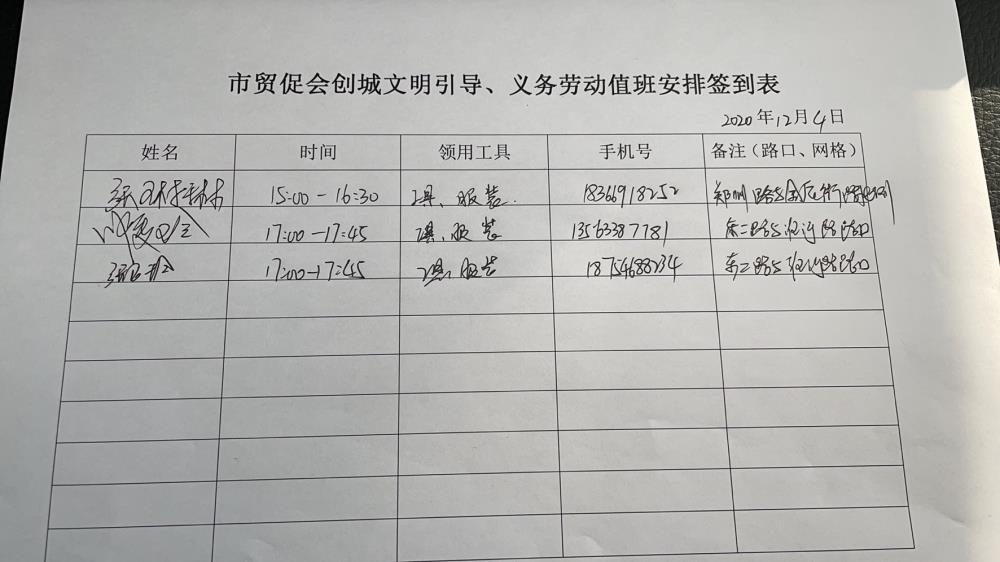 市贸促会创城文明引导、义务劳动值班安排签到表
2020年12月4日
姓名 时间 领用工具 手机号 备注（路口、网格）
15:00-16:30 工具、服装. 18366918252 郑州路与
17:00-17:45 工具、服装 13563387781 东二路与 路路口
17:00-17:45 工具、服装 18754688234 东二路与 路路口